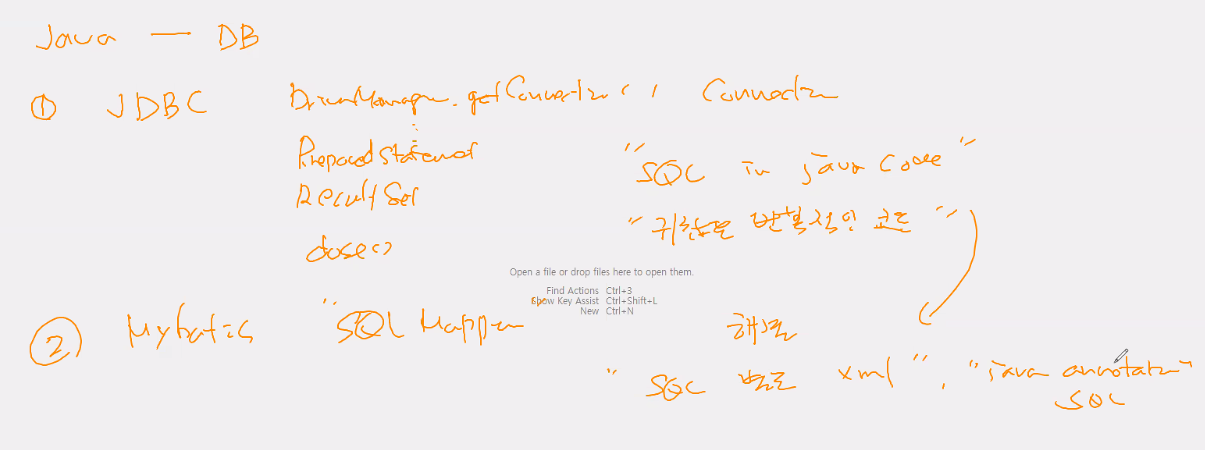 Java — DB
① JDBC DriverManager.getConnection( ) Connection
PreparedStatement
ResultSet
"SQL in java code"
"귀찮은 반복적인 코드"
close()
Open a file or drop files here to open them.
Find Actions Ctrl+3
Show Key Assist Ctrl+Shift+L
New Ctrl+N
② Mybatis "SQL Mapper
해결
"SQL 별도 xml", "java annotation
SQL